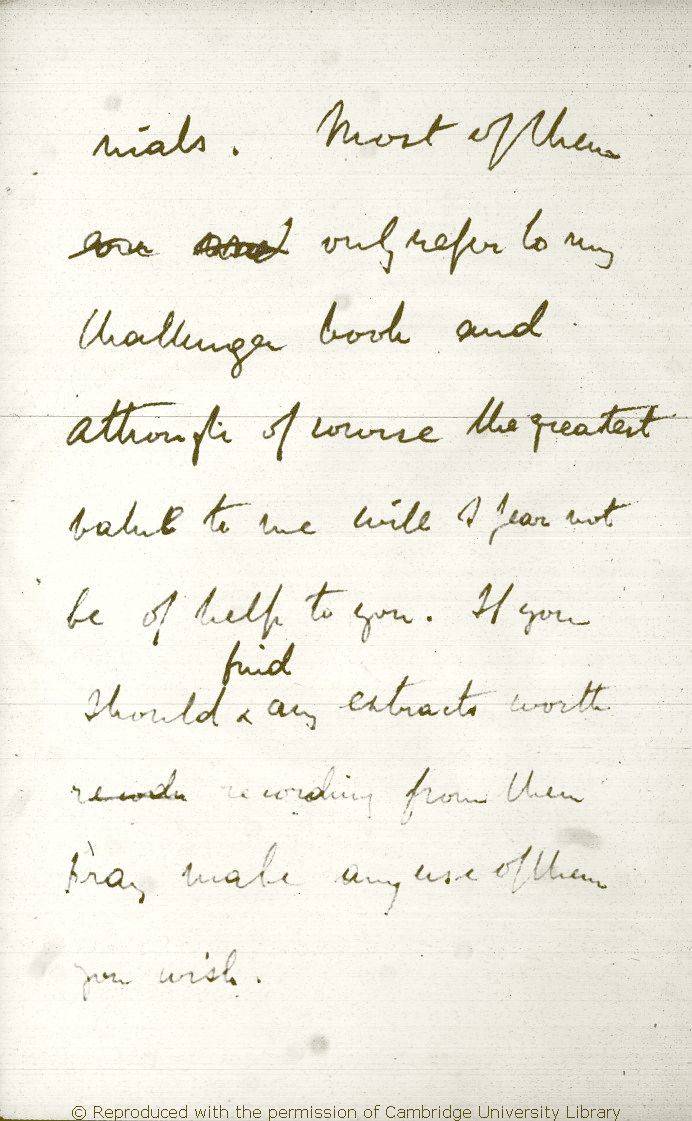 rials. Most of them
only refer to my
Challenger book and
although of course the greatest
value to me will I fear not
be of help to you. If you
find
should any extracts worth
recording from them
Pray make any use of them
you wish.
© Reproduced with the permission of Cambridge University Library